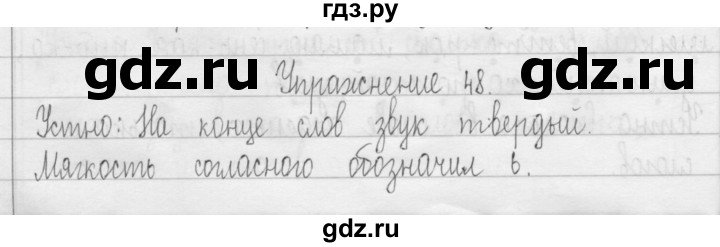 гдз.ру
gdz.ru gdz.ru
Упражнение 48.
Устно: На конце слов звук твердый.
Мягкость согласного обозначил ь.
gdz.ru